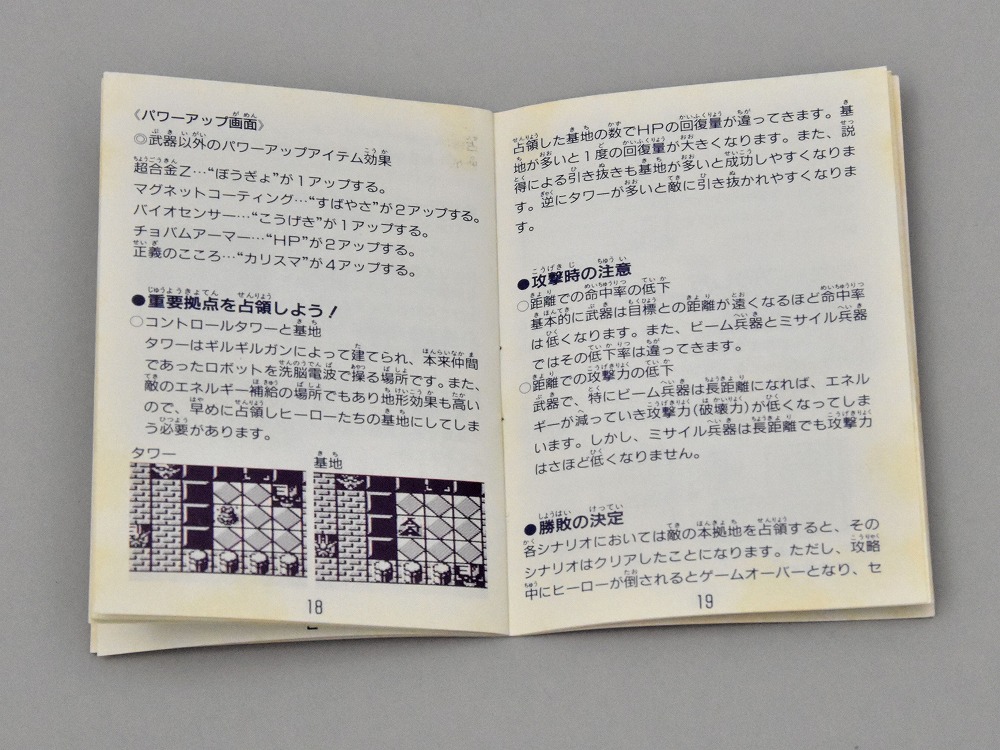 《パワーアップ画面》
◎武器以外のパワーアップアイテム効果
超合金Z…“ぼうぎょ”が1アップする。
マグネットコーティング…“すばやさ”が2アップする。
バイオセンサー…“こうげき”が1アップする。
チョバムアーマー…“HP”が2アップする。
正義のこころ…“カリスマ”が4アップする。
●重要拠点を占領しよう！
○コントロールタワーと基地
タワーはギルギルガンによって建てられ、本来仲間
であったロボットを洗脳電波で操る場所です。また、
敵のエネルギー補給の場所でもあり地形効果も高い
ので、早めに占領しヒーローたちの基地にしてしま
う必要があります。
タワー
基地
18
占領した基地の数でHPの回復量が違ってきます。基
地が多いと1度の回復量が大きくなります。また、説
得による引き抜きも基地が多いと成功しやすくなりま
す。逆にタワーが多いと敵に引き抜かれやすくなりま
す。
●攻撃時の注意
○距離での命中率の低下
基本的に武器は目標との距離が遠くなるほど命中率
は低くなります。また、ビーム兵器とミサイル兵器
ではその低下率は違ってきます。
○距離での攻撃力の低下
武器で、特にビーム兵器は長距離になれば、エネル
ギーが減っていき攻撃力(破壊力)が低くなってしま
います。しかし、ミサイル兵器は長距離でも攻撃力
はさほど低くなりません。
●勝敗の決定
各シナリオにおいては敵の本拠地を占領すると、その
シナリオはクリアしたことになります。ただし、攻略
中にヒーローが倒されるとゲームオーバーとなり、セ
19